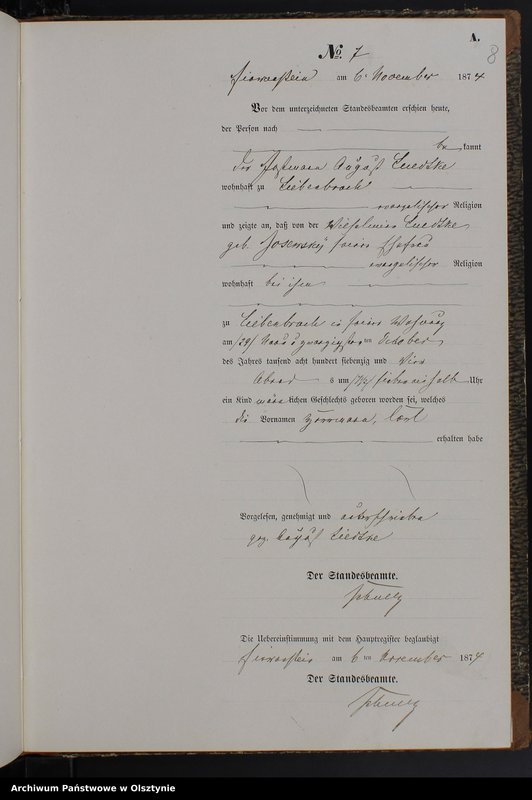 A.
8
№ 7
am 6. November 1874
Vor dem unterzeichneten Standesbeamten erschien heute,
der Person nach
be kannt
der August Luedtke
wohnhaft zu Liebenbruch
evangelischer Religion
und zeigte an, daß von der Wilhelmine Luedtke
geb. seiner Ehefrau
evangelischer Religion
wohnhaft bei ihm
zu Liebenbruch in seiner Wohnung
am /29/ Neun u zwanzigsten ten October
des Jahres tausend acht hundert siebenzig und Vier
Abend s um /7½/ Uhr
ein Kind männlichen Geschlechts geboren worden sei, welches
die Vornamen Herrmann, Carl
erhalten habe
Vorgelesen, genehmigt und unterschrieben
gez. August Liedtke
Der Standesbeamte.
Die Uebereinstimmung mit dem Hauptregister beglaubigt
am 6 ten November 1874
Der Standesbeamte.
Archiwum Państwowe w Olsztynie